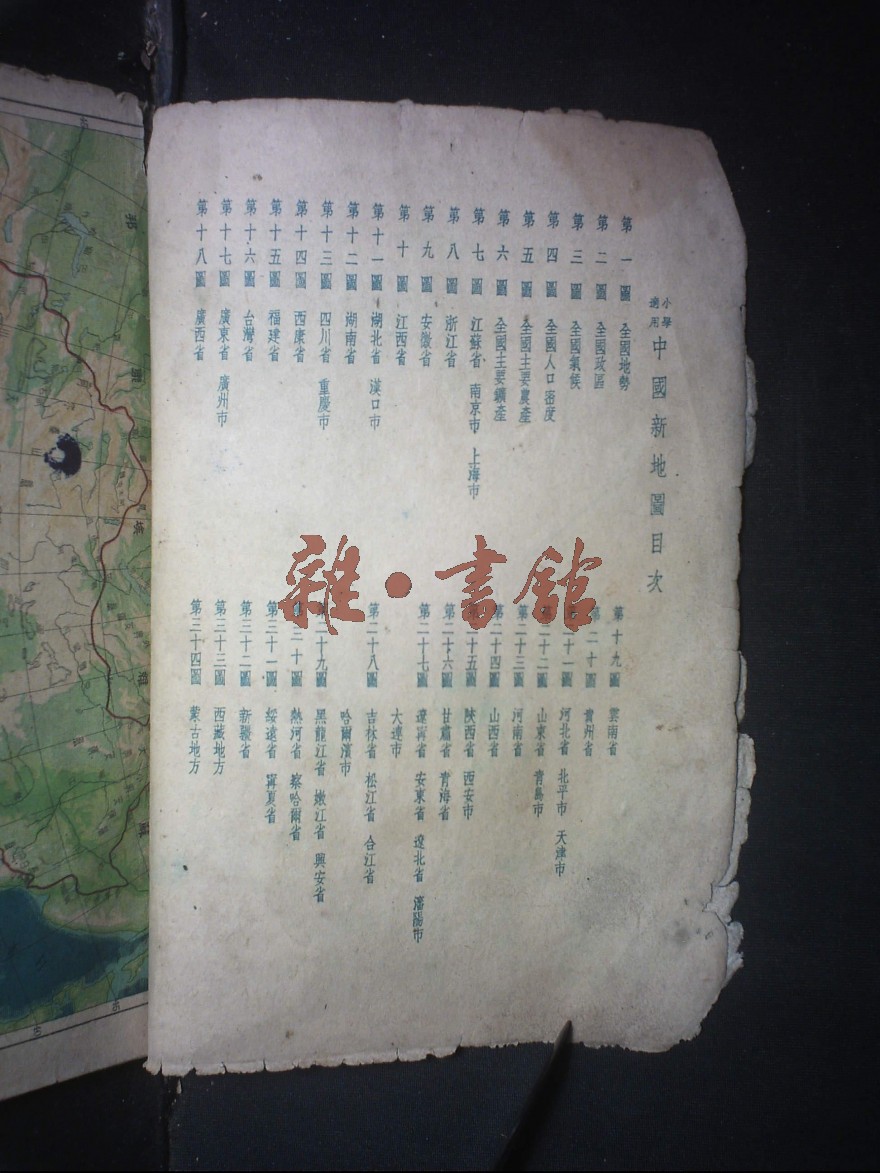 小學適用 中國新地圖目次
第一圖 全國地勢
第二圖 全國政區
第三圖 全國氣候
第四圖 全國人口密度
第五圖 全國主要農產
第六圖 全國主要鑛產
第七圖 江蘇省 南京市 上海市
第八圖 浙江省
第九圖 安徽省
第十圖 江西省
第十一圖 湖北省 漢口市
第十二圖 湖南省
第十三圖 四川省 重慶市
第十四圖 西康省
第十五圖 福建省
第十六圖 台灣省
第十七圖 廣東省 廣州市
第十八圖 廣西省
第十九圖 雲南省
第二十圖 貴州省
第二十一圖 河北省 北平市 天津市
第二十二圖 山東省 青島市
第二十三圖 河南省
第二十四圖 山西省
第二十五圖 陝西省 西安市
第二十六圖 甘肅省 青海省
第二十七圖 遼寧省 安東省 遼北省 瀋陽市
大連市
第二十八圖 吉林省 松江省 合江省
哈爾濱市
第二十九圖 黑龍江省 嫩江省 興安省
第三十圖 熱河省 察哈爾省
第三十一圖 綏遠省 寧夏省
第三十二圖 新疆省
第三十三圖 西藏地方
第三十四圖 蒙古地方
雜·書館